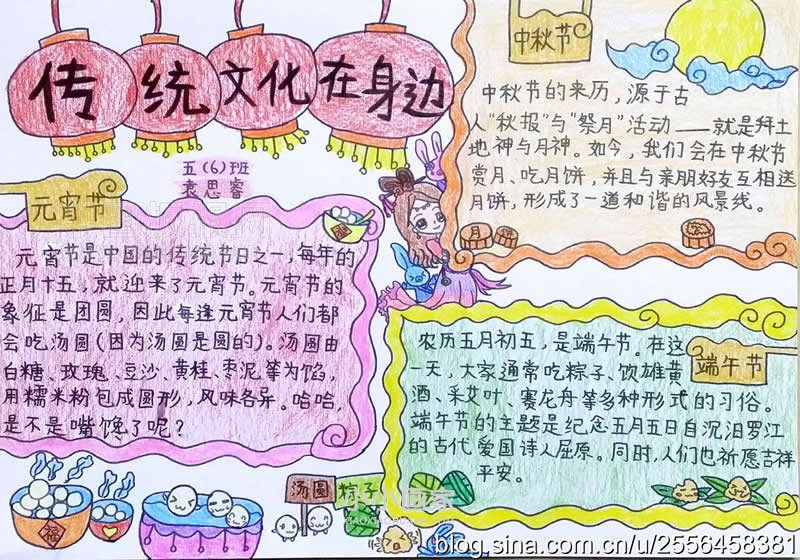 传统文化在身边
五(6)班
袁思睿
元宵节
元宵节是中国的传统节日之一,每年的
正月十五,就迎来了元宵节。元宵节的
象征是团圆,因此每逢元宵节人们都
会吃汤圆(因为汤圆是圆的)。汤圆由
白糖、玫瑰、豆沙、黄桂、枣泥等为馅,
用糯米粉包成圆形,风味各异。哈哈,
是不是嘴馋了呢?
福
福
汤圆
粽子
中秋节
中秋节的来历,源于古
人“秋报”与“祭月”活动——就是拜土
地神与月神。如今,我们会在中秋节
赏月、吃月饼,并且与亲朋好友互相送
月饼,形成了一道和谐的风景线。
端午节
农历五月初五,是端午节。在这
一天,大家通常吃粽子、饮雄黄
酒、采艾叶、赛龙舟等多种形式的习俗。
端午节的主题是纪念五月五日自沉汨罗江
的古代爱国诗人屈原。同时,人们也祈愿吉祥
平安。
小小画家
blog.sina.com.cn/u/2556458381